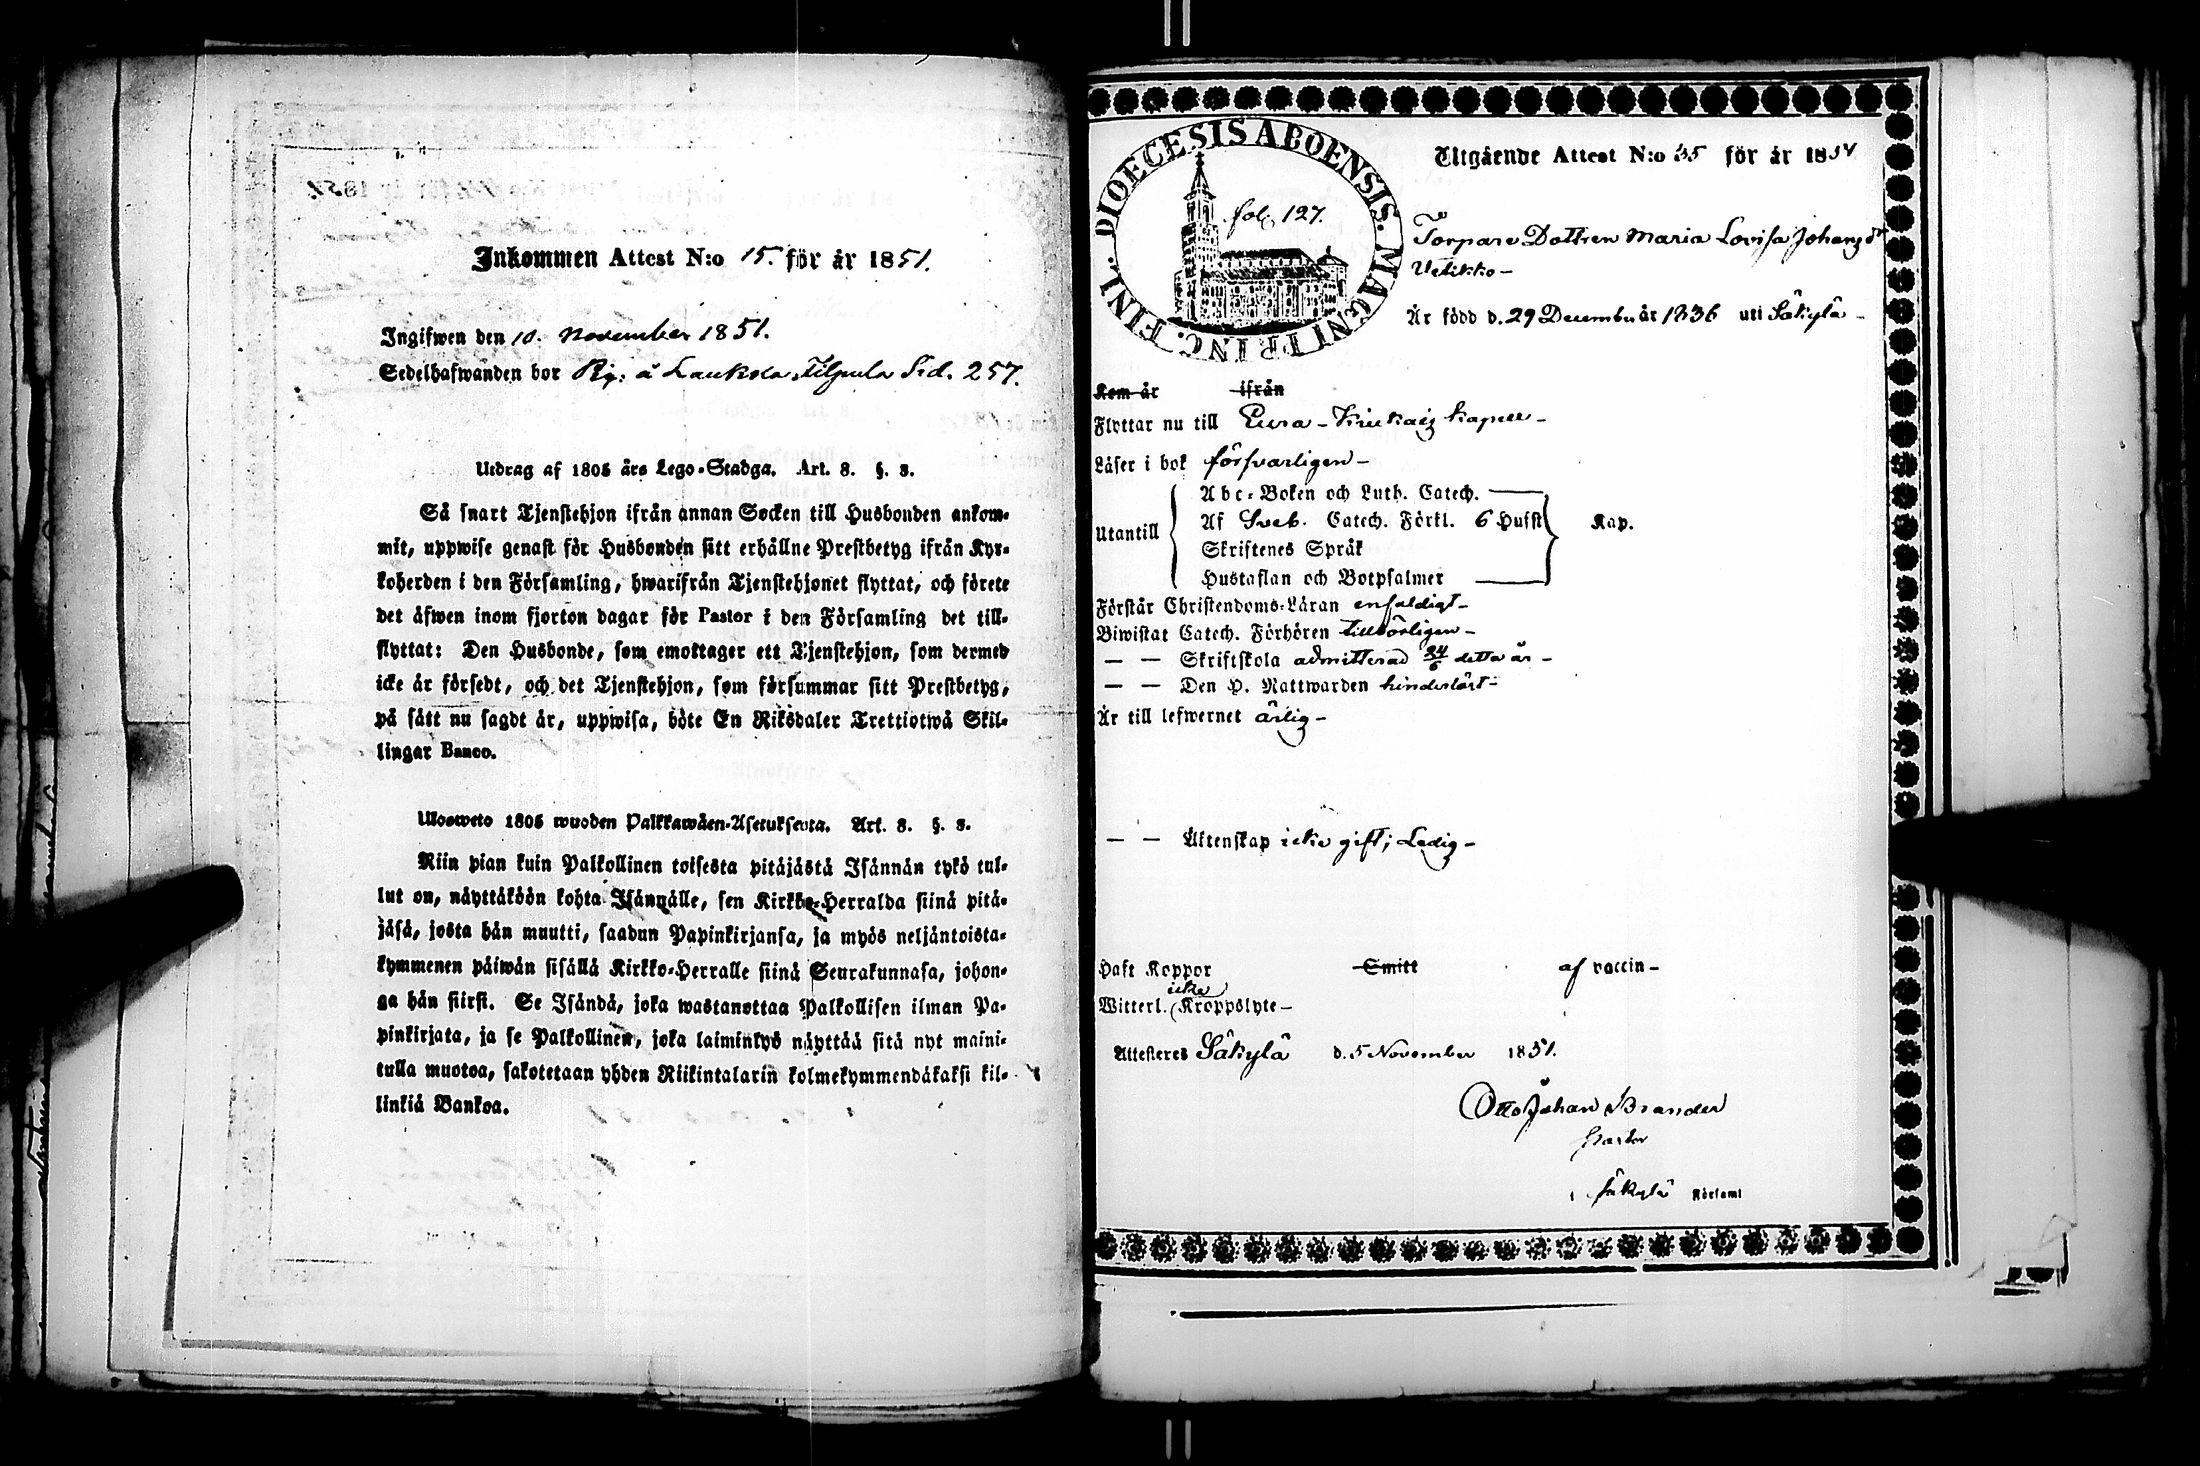 Inkommen Attest N:o 15. för år 1851.
Ingifwen den 10. November 1851.
Sedelhafwanden bor Rg. å Laukola Sid. 257.
Utdrag af 1805 års Lego-Stadga. Art. 8. §. 3.
Så snart Tjenstehjon ifrån annan Socken till Husbonden ankom-
mit, uppwise genast för Husbonden sitt erhållne Prestbetyg ifrån Kyr-
koherden i den Församling, hwarifrån Tjenstehjonet flyttat, och förete
det äfwen inom fjorton dagar för Pastor i den Församling det till-
flyttat: Den Husbonde, som emottager ett Tjenstehjon, som dermed
icke är försedt, och det Tjenstehjon, som försummar sitt Prestbetyg,
på sätt nu sagdt är, uppwisa, böte En Riksdaler Trettiotwå Skil-
lingar Banco.
Ulosweto 1805 wuoden Palkkawäen-Asetuksesta. Art. 8. §. 3.
Niin pian kuin Palkollinen toisesta pitäjästä Isännän tykö tul-
lut on, näyttäköön kohta Isännälle, sen Kirkko-Herralda siinä pitä-
jäsä, josta hän muutti, saadun Papinkirjansa, ja myös neljäntoista-
kymmenen päiwän sisällä Kirkko-Herralle siinä Seurakunnasa, johon-
ga hän siirsi. Se Isändä, joka wastanottaa Palkollisen ilman Pa-
pinkirjata, ja se Palkollinen, joka laiminlyö näyttää sitä nyt maini-
tulla muotoa, sakotetaan yhden Riikintalarin kolmekymmendäkaksi kil-
linkiä Bankoa.
DIOECESIS ABOENSIS. MAGNI PRINC. FINL.
fol. 127.
Utgående Attest N:o 35 för år 1851
Torpare Dottren Maria Lovisa Johansdr
Uslikko -
Är född d. 29 December år 1836 uti Säkylä -
Kom år ifrån
Flyttar nu till Eura - Kiukais kapell -
Läser i bok försvarligen -
Utantill
Abc-Boken och Luth. Catech.
Af Sveb. Catech. Förkl. 6 Hufst Kap.
Skriftenes Språk
Hustaflan och Botpsalmer
Förstår Christendoms-Läran enfaldigt -
Biwistat Catech. Förhören tillbörligen -
— — Skriftskola admitterad 24/6 detta år -
— — Den H. Nattwarden hinderlöst -
Är till lefwernet ärlig -
— — Äktenskap icke gift; Ledig -
Haft Koppor Smitt af vaccin -
icke
Witterl. Kroppslyte -
Attesteres Säkylä d. 5 November 1851.
Otto Johan Brander
Pastor
i Säkylä Församl